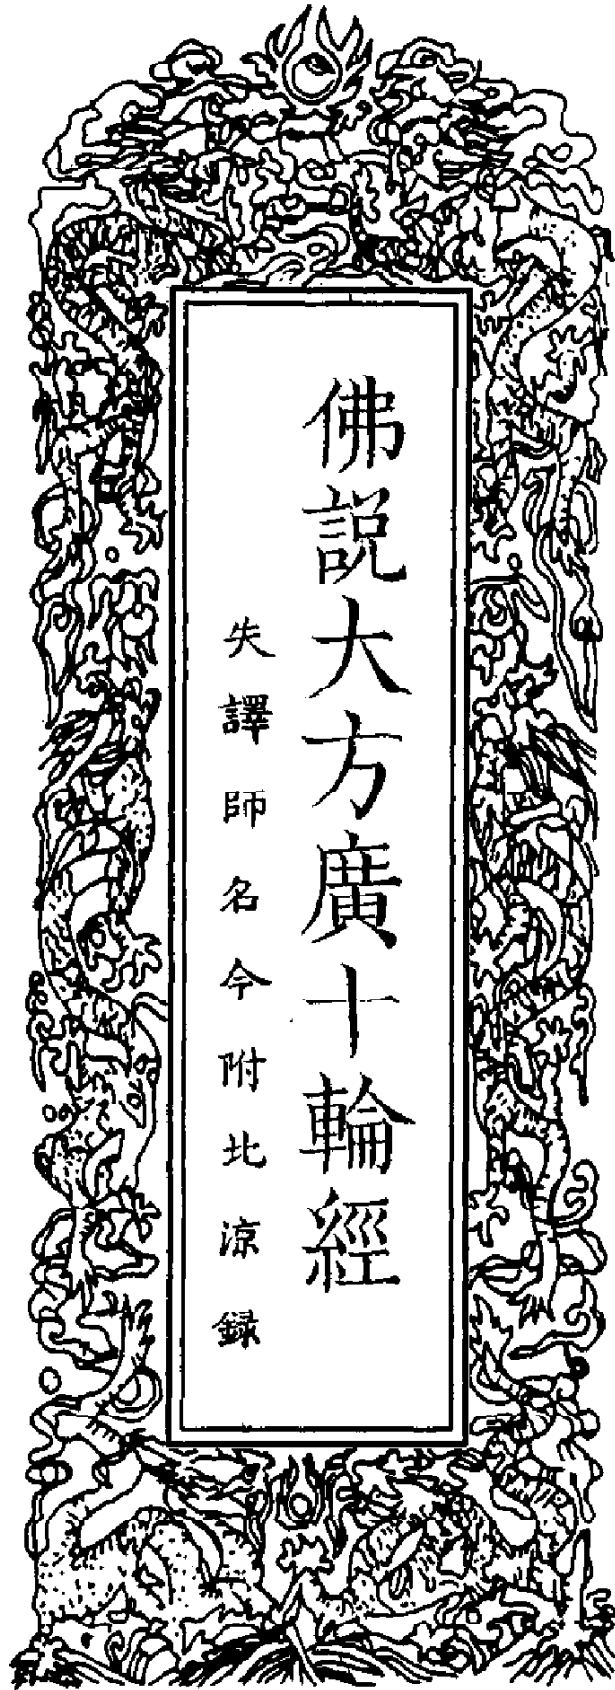 佛説大方廣十輪經
失譯師名今附北涼録